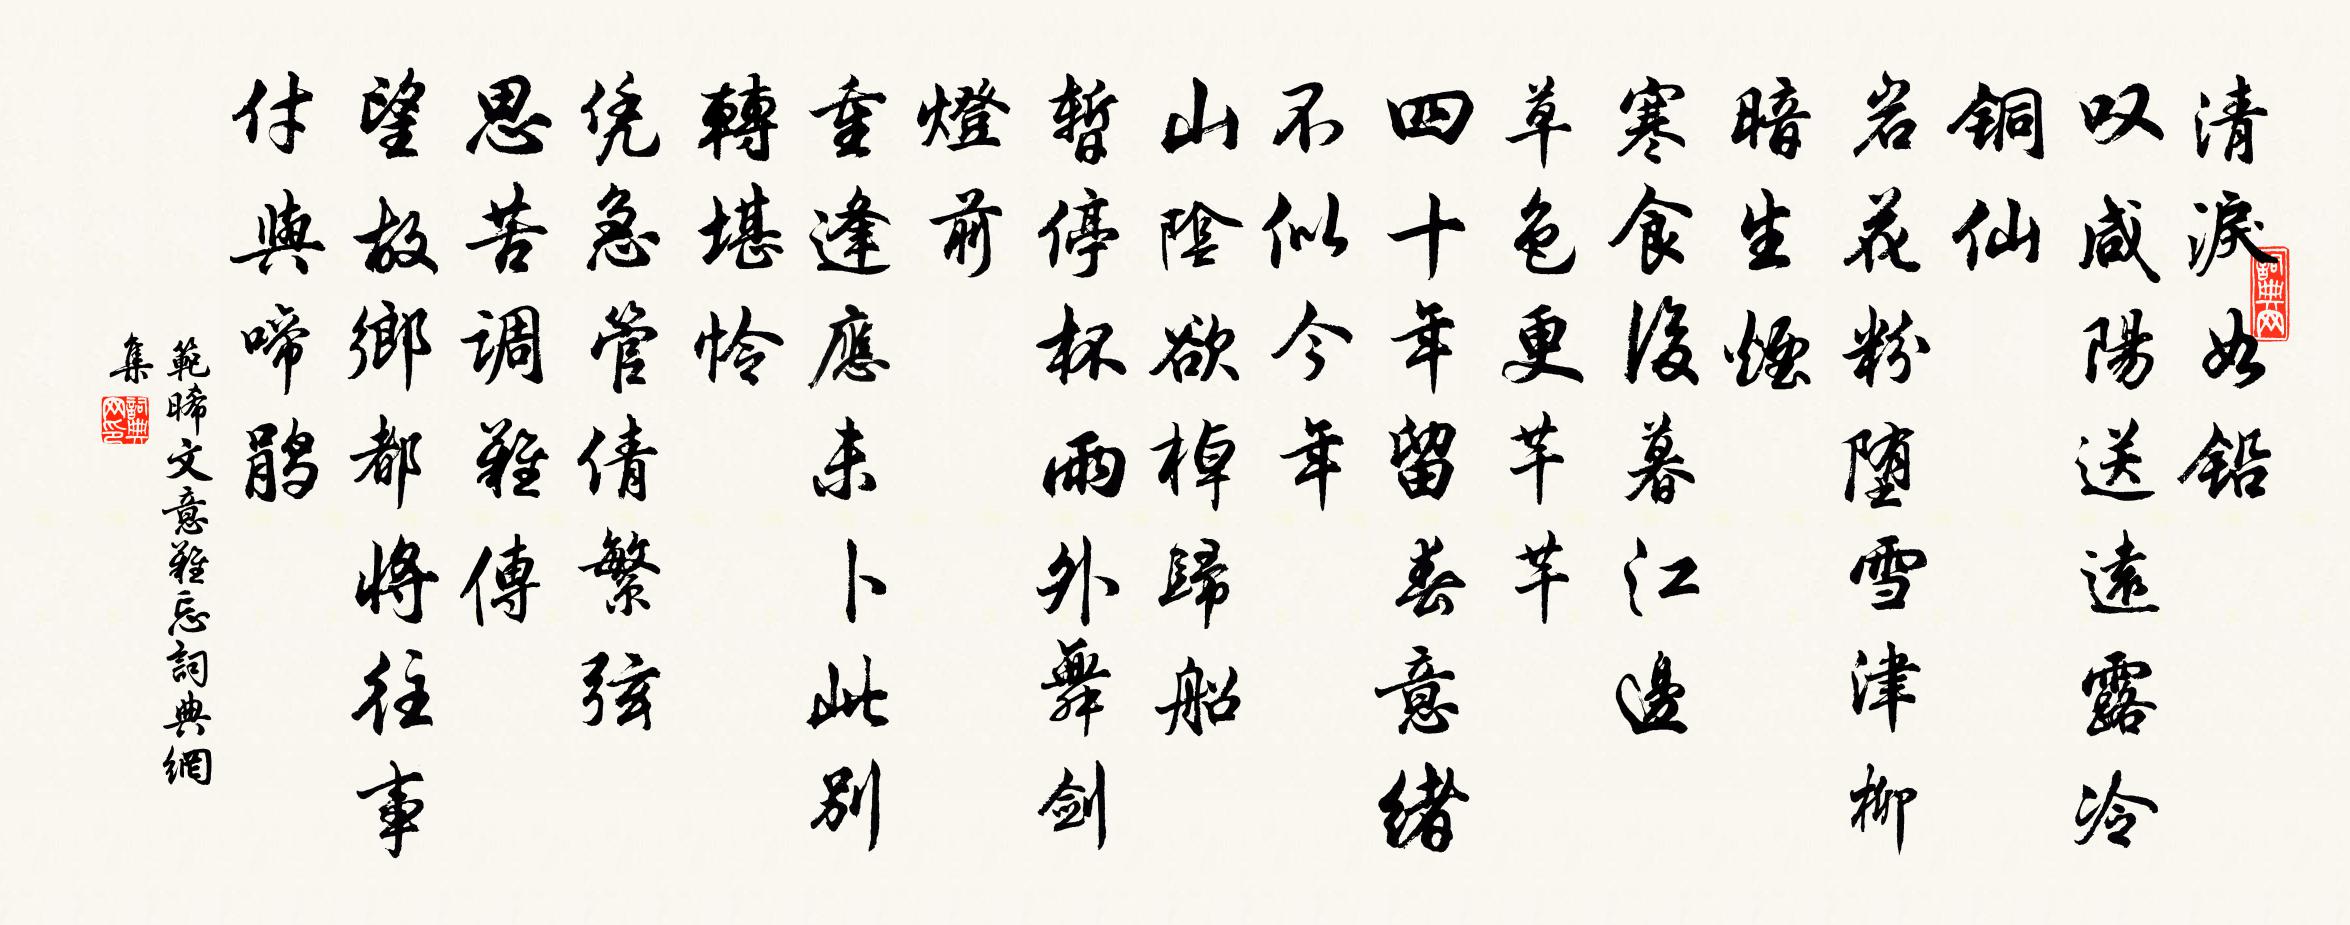 清淚如铅
叹咸陽送遠露冷
铜仙
岩花粉堕雪津柳
暗生煙
寒食後暮江邊
草色更芊芊
四十年留春意緒
不似今年
山陰欲棹歸船
暫停杯雨外舞剑
燈前
重逢應未卜此别
轉堪怜
凭急管倩繁弦
思苦調難傳
望故鄉都將往事
付與啼鹃
範晞文意難忘詞典網
集
詞典网
詞典网印